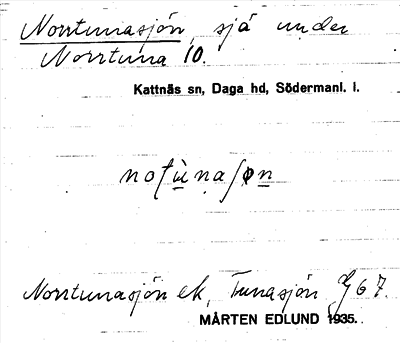 Norrtunasjön, sjö under
Norrtuna 10.
Kattnäs sn, Daga hd, Södermanl. l.
Norrtunasjön ek, Tunasjön 67.
MÅRTEN EDLUND 1935.